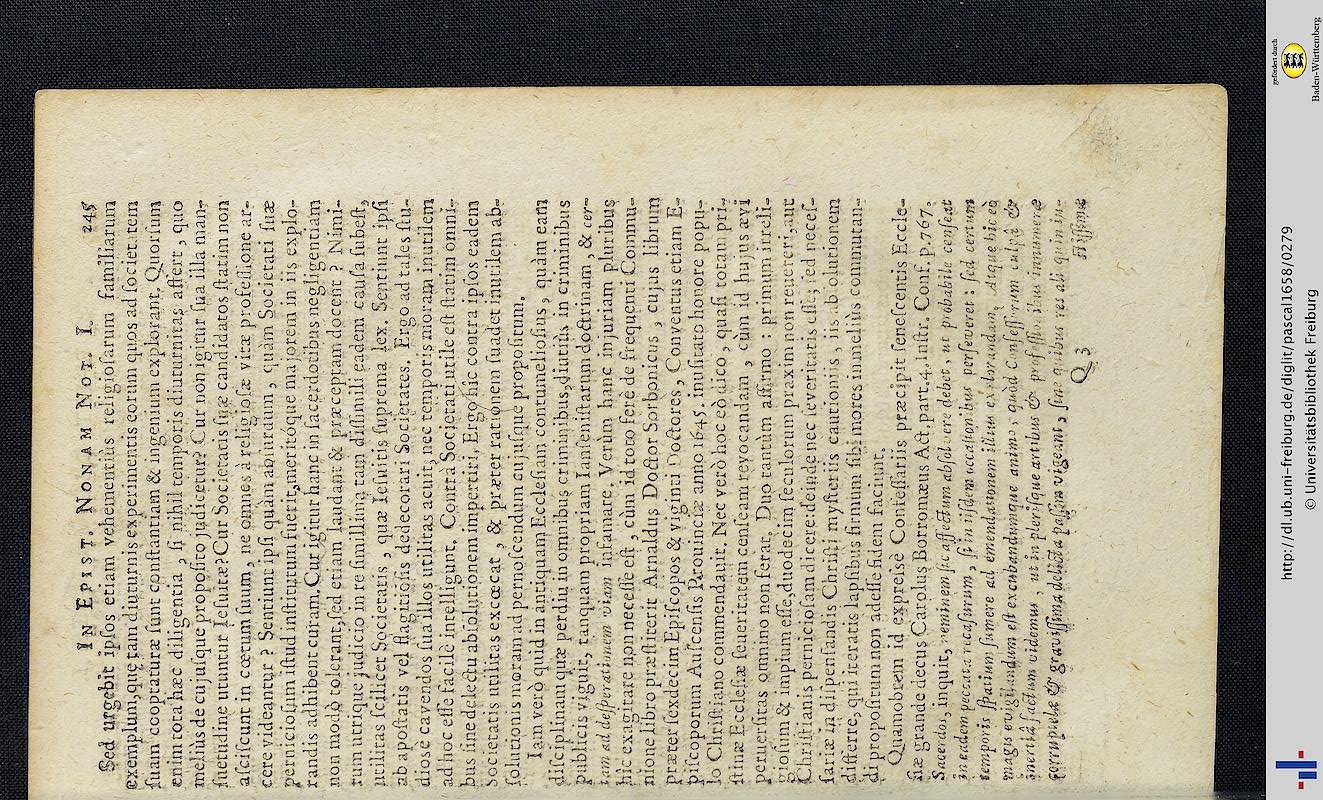 IN EPIST. NONAM NOT. I. 245
Sed urgebit ipsos etiam vehementiùs religiosarum familiarum
exemplum, quę tam diuturnis experimentis eorum quos ad societatem
suam cooptaturæ sunt constantiam & ingenium explorant. Quorsum
enim tota hæc diligentia, si nihil temporis diuturnitas affert, quo
meliùs de cujusque proposito judicetur? Cur non igitur sua illa man-
suetudine utuntur Iesuitæ? Cur Societatis suæ candidatos statim non
asciscunt in cœtum suum, ne omnes à religiosæ vitæ professione ar-
cere videantur? Sentiunt ipsi quàm abiturum, quam Societati suæ
perniciosum istud institutum fuerit, meritóque majorem in iis explo-
randis adhibent curam. Cur igitur hanc in sacerdotibus negligentiam
non modò tolerant, sed etiam laudant & præceptam docent? Nimi-
rum utrique judicio in re simillima tam dissimili eadem causa subest,
utilitas scilicet Societatis, quæ Iesuitis suprema lex. Sentiunt ipsi
ab apostatis vel flagitiosis dedecorari Societates. Ergo ad tales stu-
diosè cavendos sua illos utilitas acuit, nec temporis moram inutilem
ad hoc esse facilè intelligunt. Contrà Societati utile est statim omni-
bus sine delectu absolutionem impertiri, Ergo hîc contra ipsos eadem
Societatis utilitas excœcat, & præter rationem suadet inutilem ab-
solutionis moram ad pernoscendum cujusque propositum.
Iam verò quid in antiquam Ecclesiam contumeliosius, quàm eam
disciplinam quæ perdiu in omnibus criminibus, diutiùs in criminibus
publicis viguit, tanquam propriam Iansenistarum doctrinam, & cer-
tam ad desperationem viam insanare. Verùm hanc injuriam pluribus
hîc exagitare non necesse est, cum id toto ferè de frequenti Commu-
nione libro præstiterit Arnaldus Doctor Sorbonicus, cujus librum
præter sexdecim Episcopos & viginti Doctores, Conventus etiam E-
piscoporum Auscensis Provinciæ anno 1645. inusitato honore popu-
lo Christiano commendavit. Nec verò hoc eò dico, quasi totam pri-
stinæ Ecclesiæ severitatem censeam revocandam, cùm id hujus ævi
perversitas omnino non ferat. Duo tantum affirmo: primum irreli-
giosum & impium esse, duodecim seculorum praxim non revereri, aut
Christianis perniciosam dicere: deinde nec severitatis esse, sed neces-
sariæ in dispensandis Christi mysteriis cautionis, iis absolutionem
differre, qui iteratis lapsibus firmum sibi mores in meliùs commutan-
di propositum non adesse fidem faciunt.
Quamobrem id expressè Confessariis præcipit senescentis Eccle-
siæ grande decus Carolus Borromæus Act. part. 4. instr. Conf. p. 767.
Sacerdos, inquit, neminem sic affectum absolvere debet, ut probabile censeat
in eadem peccata recasurum, si in iisdem occasionibus perseveret: sed certum
temporis spatium sumere ad emendationem illius explorandam. Atque hic eò
magis evigilandum est excubandumque animo, quòd Confessorum culpâ &
inertiâ factum videmus, ut in perisque artibus & professionibus innumeræ
corruptelæ & gravissima delicta passim vigeant, sine quibus res ali quin in-
Q 3 nissimæ
gefördert durch
Baden-Württemberg
http://dl.ub.uni-freiburg.de/diglit/pascal1658/0279
© Universitätsbibliothek Freiburg